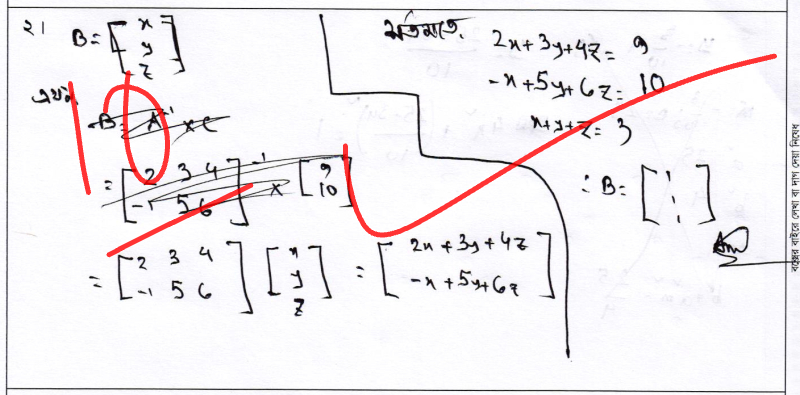 ২। B = [x y z]
এখন,
B = A⁻¹ × C
= [2 3 4
-1 5 6]⁻¹ × [9
10]
= [2 3 4
-1 5 6] [x
y
z] = [2x + 3y + 4z
-x + 5y + 6z]
প্রশ্নমতে,
2x + 3y + 4z = 9
-x + 5y + 6z = 10
x + y + z = 3
∴ B = [1
1
1]
Ans
বক্সের বাইরে লেখা বা দাগ দেয়া নিষেধ